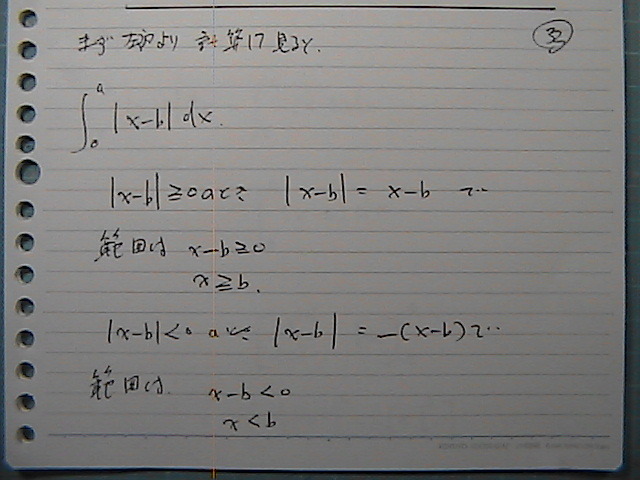 まず左辺より計算して見ると. ㉝
∫₀ᵃ |x-b| dx.
|x-b| ≧ 0 のとき |x-b| = x-b で…
範囲は x-b ≧ 0
x ≧ b.
|x-b| < 0 のとき |x-b| = -(x-b) で…
範囲は. x-b < 0
x < b